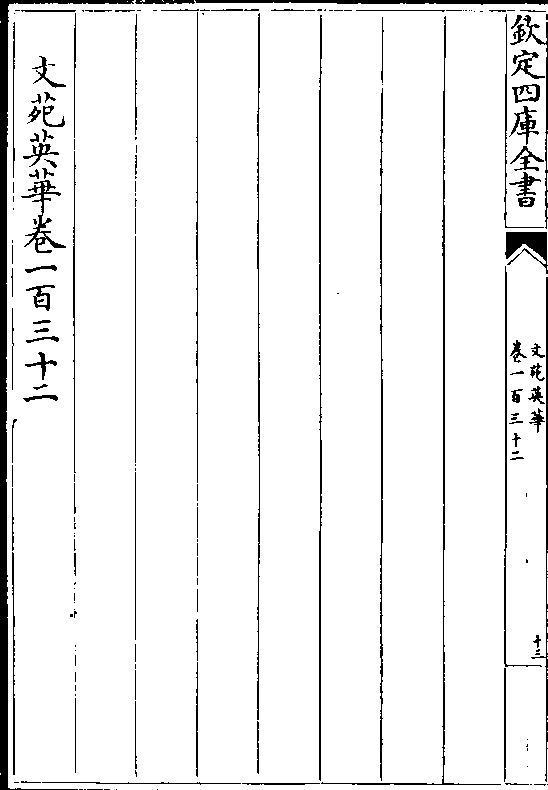 欽定四庫全書
文苑英華
卷一百三十二
十三
文苑英華卷一百三十二